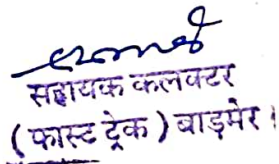 सहायक कलक्टर
( फास्ट ट्रेक ) बाड़मेर ।